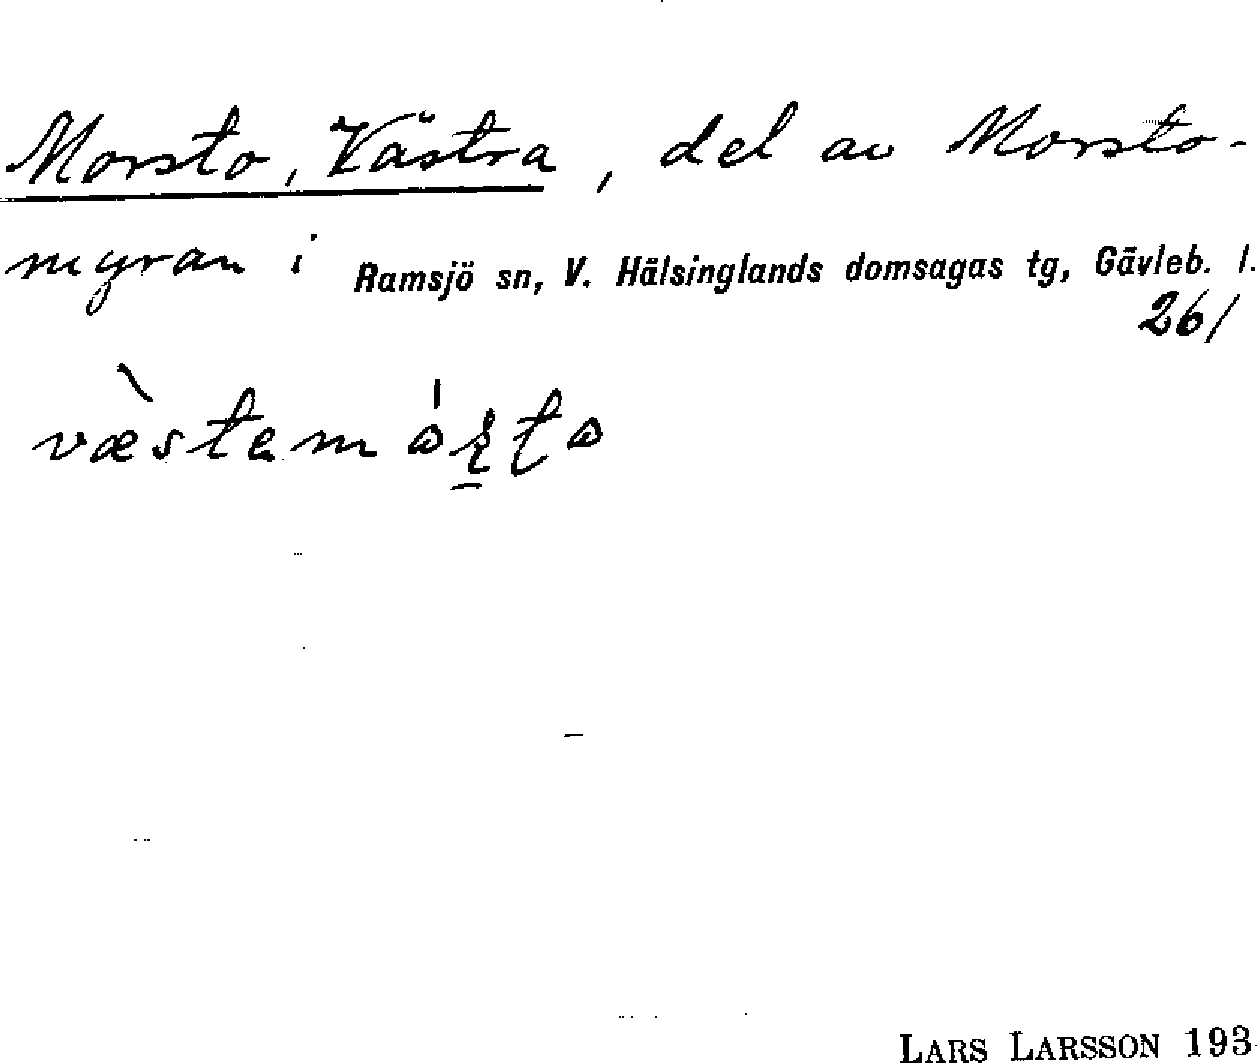 Morsto, Västra, del av Morsto-
myran i Ramsjö sn, V. Hälsinglands domsagas tg, Gävleb. l.
261
LARS LARSSON 193